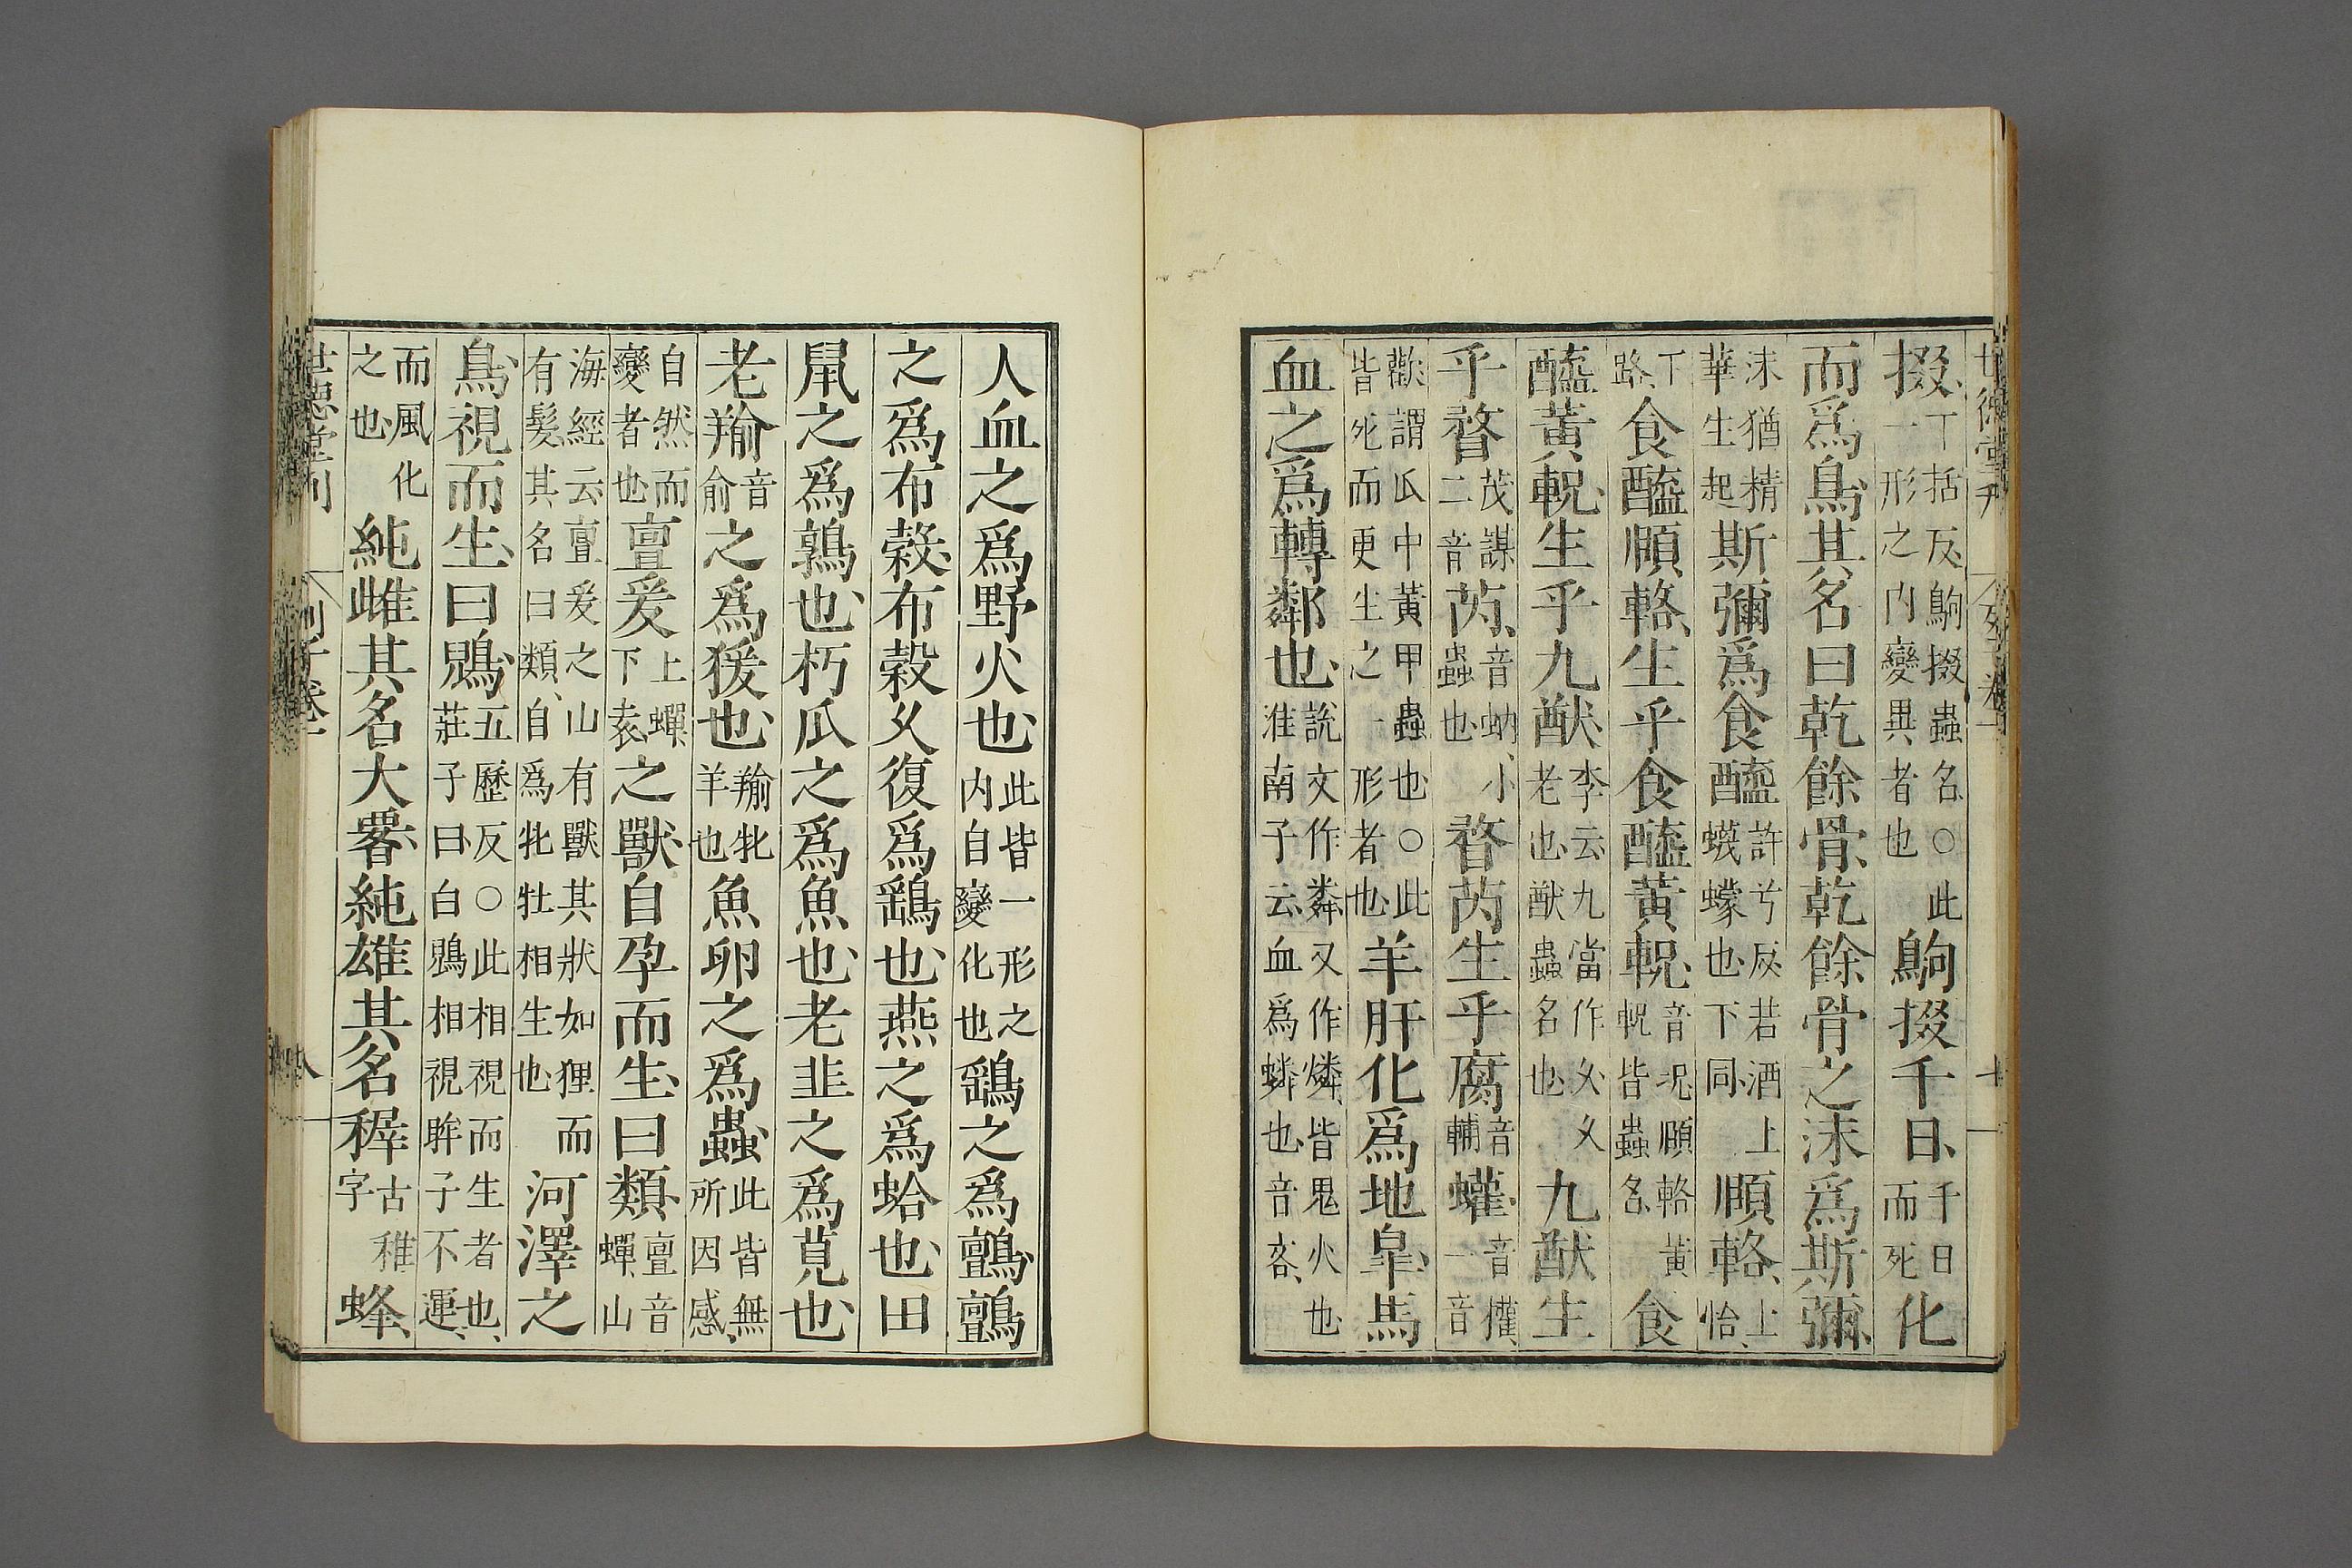 世德堂刊 列子卷一 七
掇丁括反鴝掇蟲名○此一形之内變異者也鴝掇千日千日而死化
而爲鳥其名曰乾餘骨乾餘骨之沫爲斯彌
沫猶精華生起斯彌爲食醯許兮反若酒上蠛蠓也下同頤輅上怡
丁路食醯頤輅生乎食醯黃軦音况頤輅黃軦皆蟲名食
醯黃軦生乎九猷李云九當作久久老也猷蟲名也九猷生
乎瞀茂謀二音芮音蚋小蟲也瞀芮生乎腐音輔蠸音權一音
歡謂瓜中黃甲蟲也○此皆死而更生之一形者也羊肝化爲地皐馬
血之爲轉鄰也說文作粦又作燐皆鬼火也淮南子云血爲燐也音吝
人血之爲野火也此皆一形之内自變化也鷂之爲鸇鸇
之爲布穀布穀久復爲鷂也燕之爲蛤也田
鼠之爲鶉也朽瓜之爲魚也老韭之爲莧也
老羭音俞之爲猨也羭牝羊也魚卵之爲蟲此皆無所因感
自然而變者也亶爰上蟬下袁之獸自孕而生曰類亶音蟬山
海經云亶爰之山有獸其狀如狸而有髮其名曰類自爲牝牡相生也河澤之
鳥視而生曰鶂五歷反○此相視而生者也莊子曰白鶂相視眸子不運
而風化之也純雌其名大䐗純雄其名稺古稚字蜂
世德堂刊 列子卷一 八